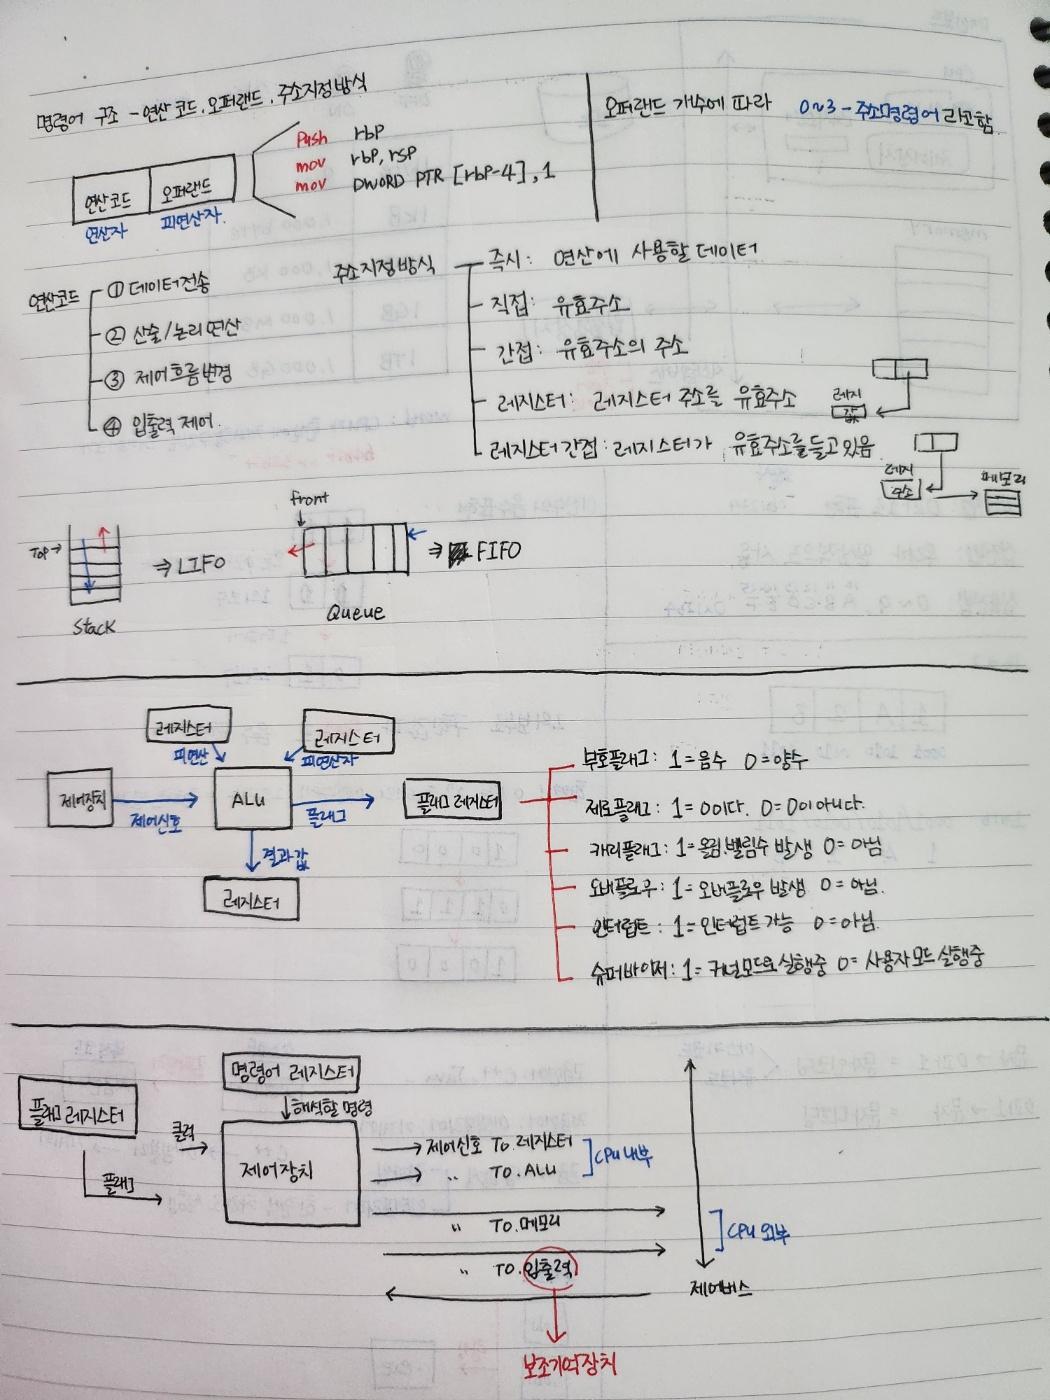 명령어 구조 - 연산코드, 오퍼랜드, 주소지정방식
연산코드 오퍼랜드
연산자 피연산자.
Push rbp
mov rbp, rsp
mov DWORD PTR [rbp-4], 1
오퍼랜드 개수에 따라 0~3-주소명령어라고함.
연산코드
① 데이터전송
② 산술/논리연산
③ 제어흐름변경
④ 입출력 제어.
주소지정방식
즉시: 연산에 사용할 데이터
직접: 유효주소
간접: 유효주소의 주소
레지스터: 레지스터 주소를 유효주소
레지스터간접: 레지스터가 유효주소를들고있음
레지
값
레지
주소
메모리
TOP →
⇒ LIFO
Stack
front
⇒ FIFO
Queue
레지스터
피연산
레지스터
피연산자
제어장치
제어신호
ALU
플래그
플래그 레지스터
결과값
레지스터
부호플래그: 1=음수 0=양수
제로플래그: 1=0이다. 0=0이아니다.
캐리플래그: 1=올림.빌림수 발생 0=아님
오버플로우: 1=오버플로우 발생 0=아님.
인터럽트: 1=인터럽트가능 0=아님.
슈퍼바이저: 1=커널모드로실행중 0=사용자모드실행중
명령어 레지스터
↓해석할명령
플래그 레지스터
클럭
플래그
제어장치
제어신호 TO.레지스터
〃 TO.ALU
CPU 내부
〃 TO.메모리
〃 TO.입출력
CPU 외부
제어버스
보조기억장치